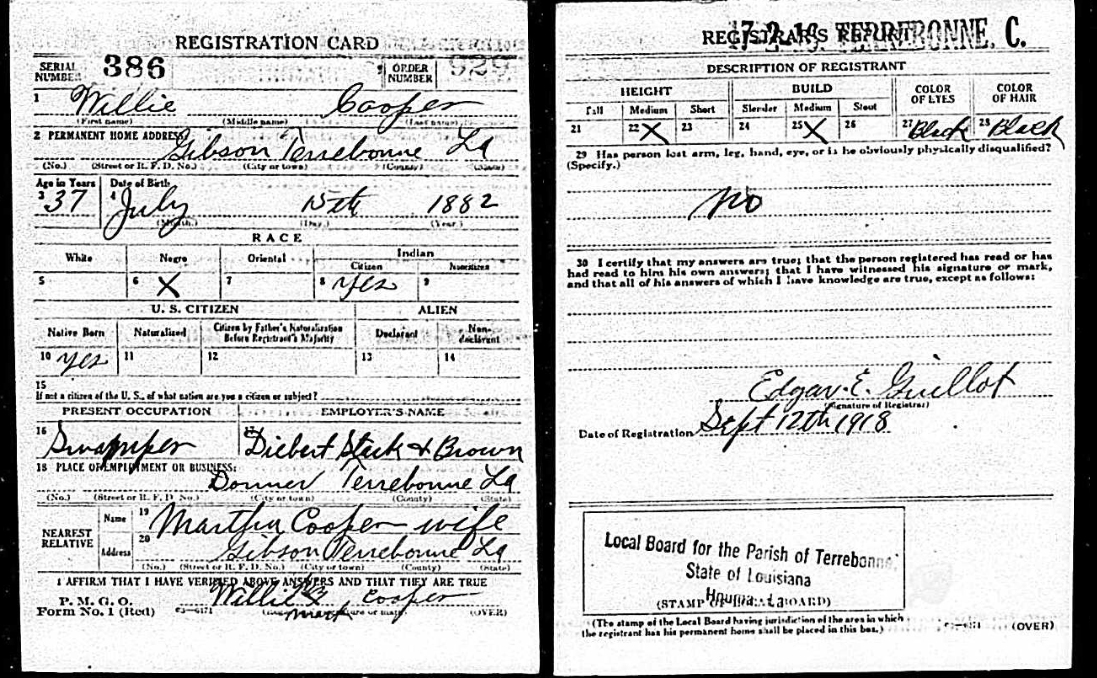 REGISTRATION CARD
SERIAL NUMBER 386
ORDER NUMBER 929
1 Willie Cooper
(First name) (Middle name) (Last name)
2 PERMANENT HOME ADDRESS:
Gibson Terrebonne La
(No.) (Street or R. F. D. No.) (City or town) (County) (State)
Age in Years Date of Birth
3 37 4 July 15th 1882
(Month.) (Day.) (Year.)
RACE
White Negro Oriental Indian
Citizen Noncitizen
5 6 X 7 8 yes 9
U. S. CITIZEN ALIEN
Native Born Naturalized Citizen by Father's Naturalization Before Registrant's Majority Declarant Non-declarant
10 yes 11 12 13 14
15
If not a citizen of the U. S., of what nation are you a citizen or subject?
PRESENT OCCUPATION EMPLOYER'S NAME
16 Swamper 17 Diebert Stark & Brown
18 PLACE OF EMPLOYMENT OR BUSINESS:
Donner Terrebonne La
(No.) (Street or R. F. D. No.) (City or town) (County) (State)
NEAREST RELATIVE
Name 19 Martha Cooper wife
Address 20 Gibson Terrebonne La
(No.) (Street or R. F. D. No.) (City or town) (County) (State)
I AFFIRM THAT I HAVE VERIFIED ABOVE ANSWERS AND THAT THEY ARE TRUE
P. M. G. O.
Form No. 1 (Red) 03—6171
Willie Cooper
mark
(Registrant's signature or mark) (OVER)
REGISTRAR'S REPORT
17-2-16. TERREBONNE, C.
DESCRIPTION OF REGISTRANT
HEIGHT BUILD COLOR OF EYES COLOR OF HAIR
Tall Medium Short Slender Medium Stout
21 22 X 23 24 25 X 26 27 Black 28 Black
29 Has person lost arm, leg, hand, eye, or is he obviously physically disqualified?
(Specify.)
no
30 I certify that my answers are true; that the person registered has read or has
had read to him his own answers; that I have witnessed his signature or mark,
and that all of his answers of which I have knowledge are true, except as follows:
Edgar E. Guillot
(Signature of Registrar)
Date of Registration Sept 12th 1918
Local Board for the Parish of Terrebonne,
State of Louisiana
Houma, La.
(STAMP OF LOCAL BOARD)
(The stamp of the Local Board having jurisdiction of the area in which
the registrant has his permanent home shall be placed in this box.)
03—6171 (OVER)